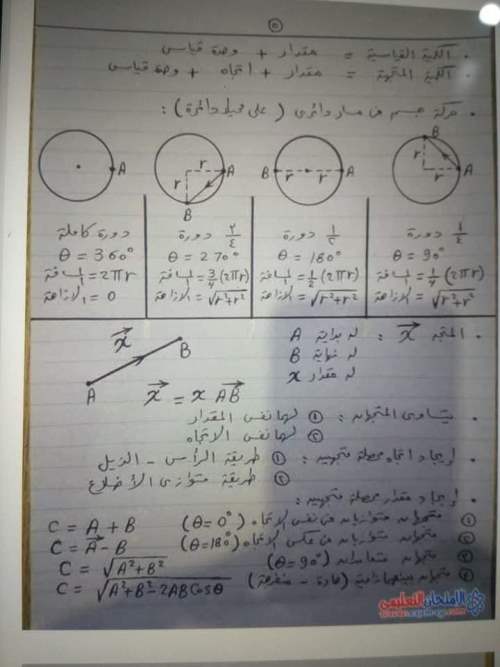 ٥
. الكمية القياسية = مقدار + وحدة قياس
. الكمية المتجهة = مقدار + اتجاه + وحدة قياس
. حركة جسم فى مسار دائرى (على محيط دائرة) :
B A r r
B A r r
A B r r
A
١/٤ دورة
θ = 90°
المسافة = 1/4 (2πr)
الازاحة = √r²+r²
١/٢ دورة
θ = 180°
المسافة = 1/2 (2πr)
الازاحة = √r²+r²
٣/٤ دورة
θ = 270°
المسافة = 3/4 (2πr)
الازاحة = √r²+r²
دورة كاملة
θ = 360°
المسافة = 2πr
الازاحة = 0
. المتجه x⃗ : له بداية A
له نهاية B
له مقدار x
x⃗ A B
x⃗ = x AB⃗
. يتساوى المتجهان : ① لهما نفس المقدار
② لهما نفس الاتجاه
. إيجاد اتجاه محصلة متجهين : ① طريقة الرأس - الذيل
② طريقة متوازى الأضلاع
. إيجاد مقدار محصلة متجهين :
① متجهان متوازيان فى نفس الاتجاه (θ=0°) C = A + B
② متجهان متوازيان فى عكس الاتجاه (θ=180°) C = A - B
③ متجهان متعامدان (θ=90°) C = √A²+B²
④ متجهان بينهما زاوية (حادة - منفرجة) C = √A²+B²-2ABCosθ
الامتحان التعليمى
www.exam-eg.com